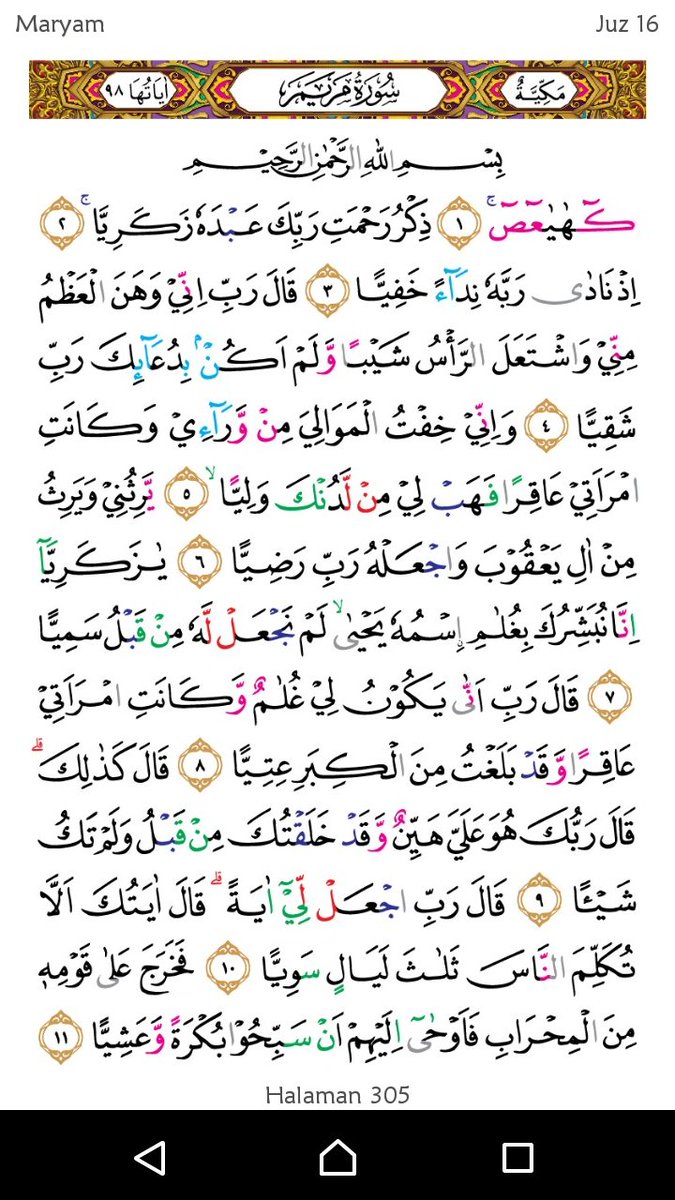 Maryam Juz 16
مَكِّيَّةٌ سُورَةُ مَرْيَمَ اٰيَاتُهَا ٩٨
بِسْمِ اللّٰهِ الرَّحْمٰنِ الرَّحِيْمِ
كۤهٰيٰعۤصۤ ۚ ١ ذِكْرُ رَحْمَتِ رَبِّكَ عَبْدَهٗ زَكَرِيَّا ۚ ٢
اِذْ نَادٰى رَبَّهٗ نِدَاۤءً خَفِيًّا ٣ قَالَ رَبِّ اِنِّيْ وَهَنَ الْعَظْمُ
مِنِّيْ وَاشْتَعَلَ الرَّأْسُ شَيْبًا وَّلَمْ اَكُنْۢ بِدُعَاۤىِٕكَ رَبِّ
شَقِيًّا ٤ وَاِنِّيْ خِفْتُ الْمَوَالِيَ مِنْ وَّرَاۤءِيْ وَكَانَتِ
امْرَاَتِيْ عَاقِرًا فَهَبْ لِيْ مِنْ لَّدُنْكَ وَلِيًّا ۙ ٥ يَّرِثُنِيْ وَيَرِثُ
مِنْ اٰلِ يَعْقُوْبَ وَاجْعَلْهُ رَبِّ رَضِيًّا ٦ يٰزَكَرِيَّآ
اِنَّا نُبَشِّرُكَ بِغُلٰمِ ِۨاسْمُهٗ يَحْيٰى ۙ لَمْ نَجْعَلْ لَّهٗ مِنْ قَبْلُ سَمِيًّا
٧ قَالَ رَبِّ اَنّٰى يَكُوْنُ لِيْ غُلٰمٌ وَّكَانَتِ امْرَاَتِيْ
عَاقِرًا وَّقَدْ بَلَغْتُ مِنَ الْكِبَرِ عِتِيًّا ٨ قَالَ كَذٰلِكَ ۗ
قَالَ رَبُّكَ هُوَ عَلَيَّ هَيِّنٌ وَّقَدْ خَلَقْتُكَ مِنْ قَبْلُ وَلَمْ تَكُ
شَيْـًٔا ٩ قَالَ رَبِّ اجْعَلْ لِّيْٓ اٰيَةً ۗ قَالَ اٰيَتُكَ اَلَّا
تُكَلِّمَ النَّاسَ ثَلٰثَ لَيَالٍ سَوِيًّا ١٠ فَخَرَجَ عَلٰى قَوْمِهٖ
مِنَ الْمِحْرَابِ فَاَوْحٰٓى اِلَيْهِمْ اَنْ سَبِّحُوْا بُكْرَةً وَّعَشِيًّا ١١
Halaman 305